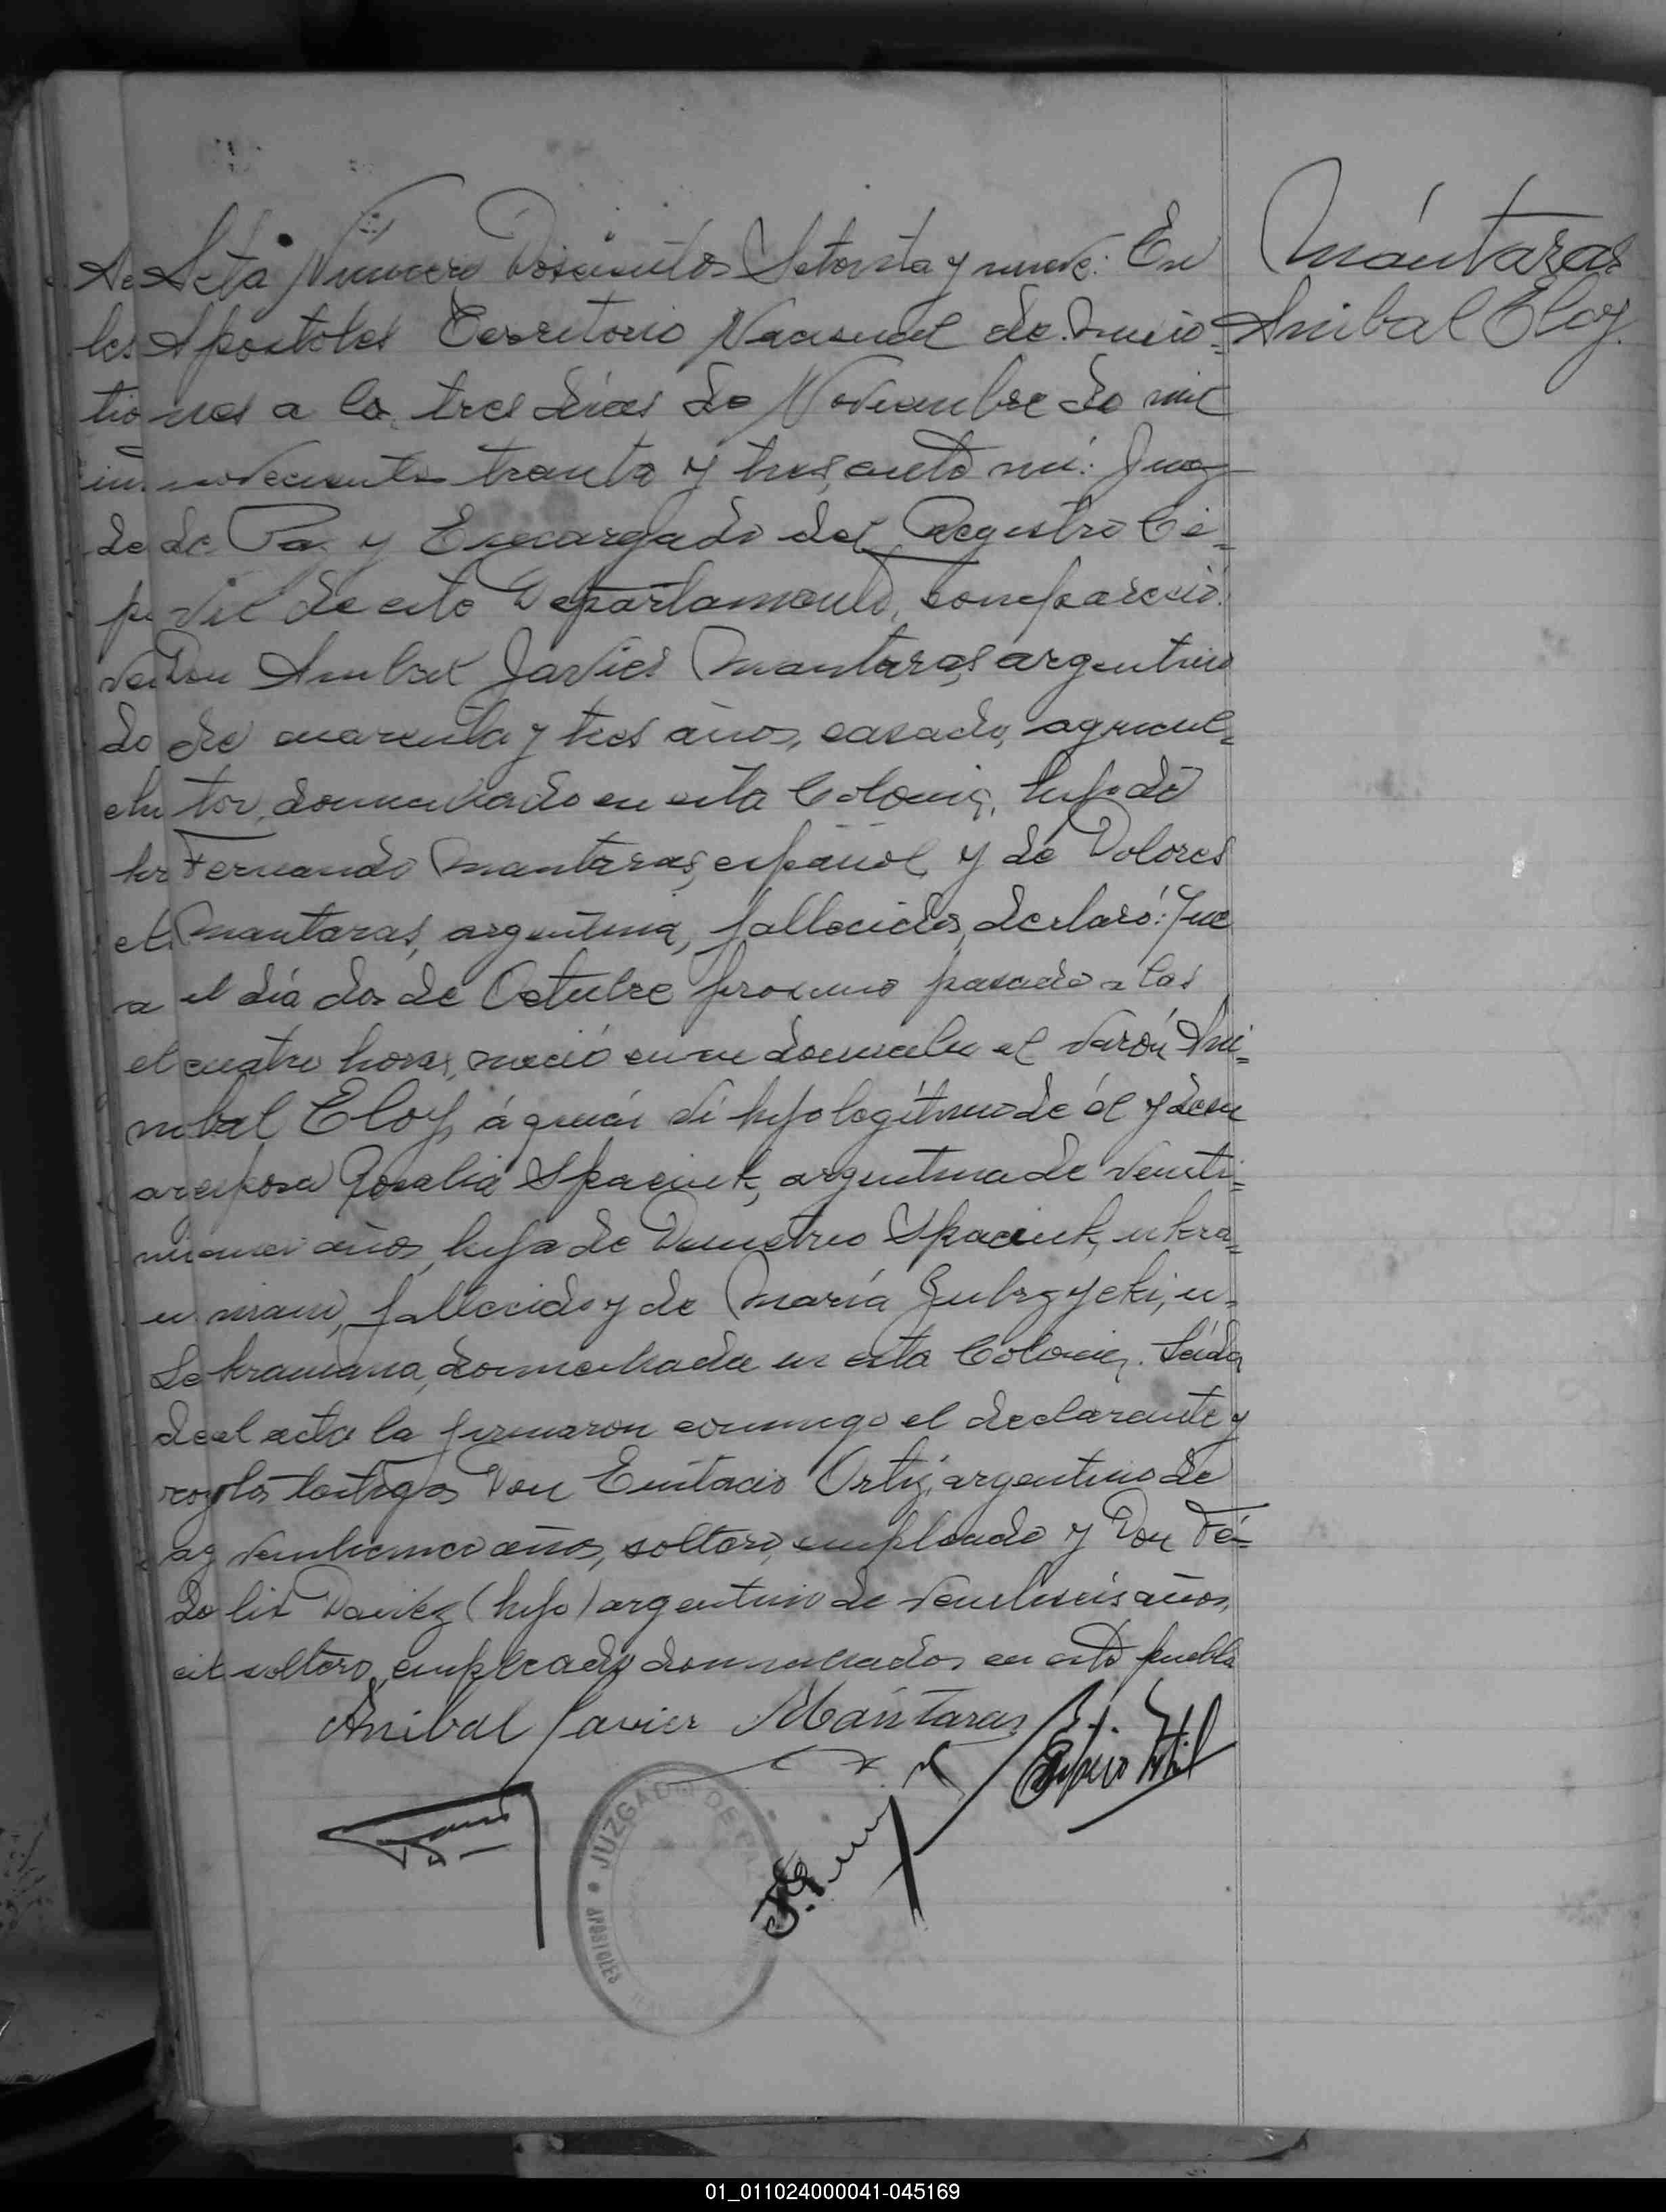 Mántaras
Anibal Eloy.
Acta Número Doscientos Setenta y nueve: En
Apostoles Territorio Nacional de Misio=
nes a los tres dias de Noviembre de mil
novecientos treinta y tres, ante mi: Juez
de Paz y Encargado del Registro Ci=
vil de este Departamento, compareció:
Don Anibal Javier Mantaras, argentino
de cuarenta y tres años, casado, agricul=
tor, domiciliado en esta Colonia, hijo de
Fernando Mantaras, español, y de Dolores
Mantaras, argentina, fallecidos, declaró: Que
el día dos de Octubre proximo pasado a las
cuatro horas, nació en su domicilio el varón Ani=
bal Eloy, á quien di hijo legítimo de él y de su
esposa Rosalia Spaciuk, argentina de veinti=
años, hija de Demetrio Spaciuk, ukra=
niano, fallecido y de María Zubrzycki, u=
kraniana, domiciliada en esta Colonia. Leída
el acta la firmaron conmigo el declarante y
los testigos Don Eustacio Ortiz, argentino de
veinticinco años, soltero, empleado y Don Fé=
lix (hijo) argentino de veintiseis años,
soltero, empleado, domiciliados en este pueblo
Anibal Javier Mántaras
JUZGADO DE PAZ
APOSTOLES
01_011024000041-045169